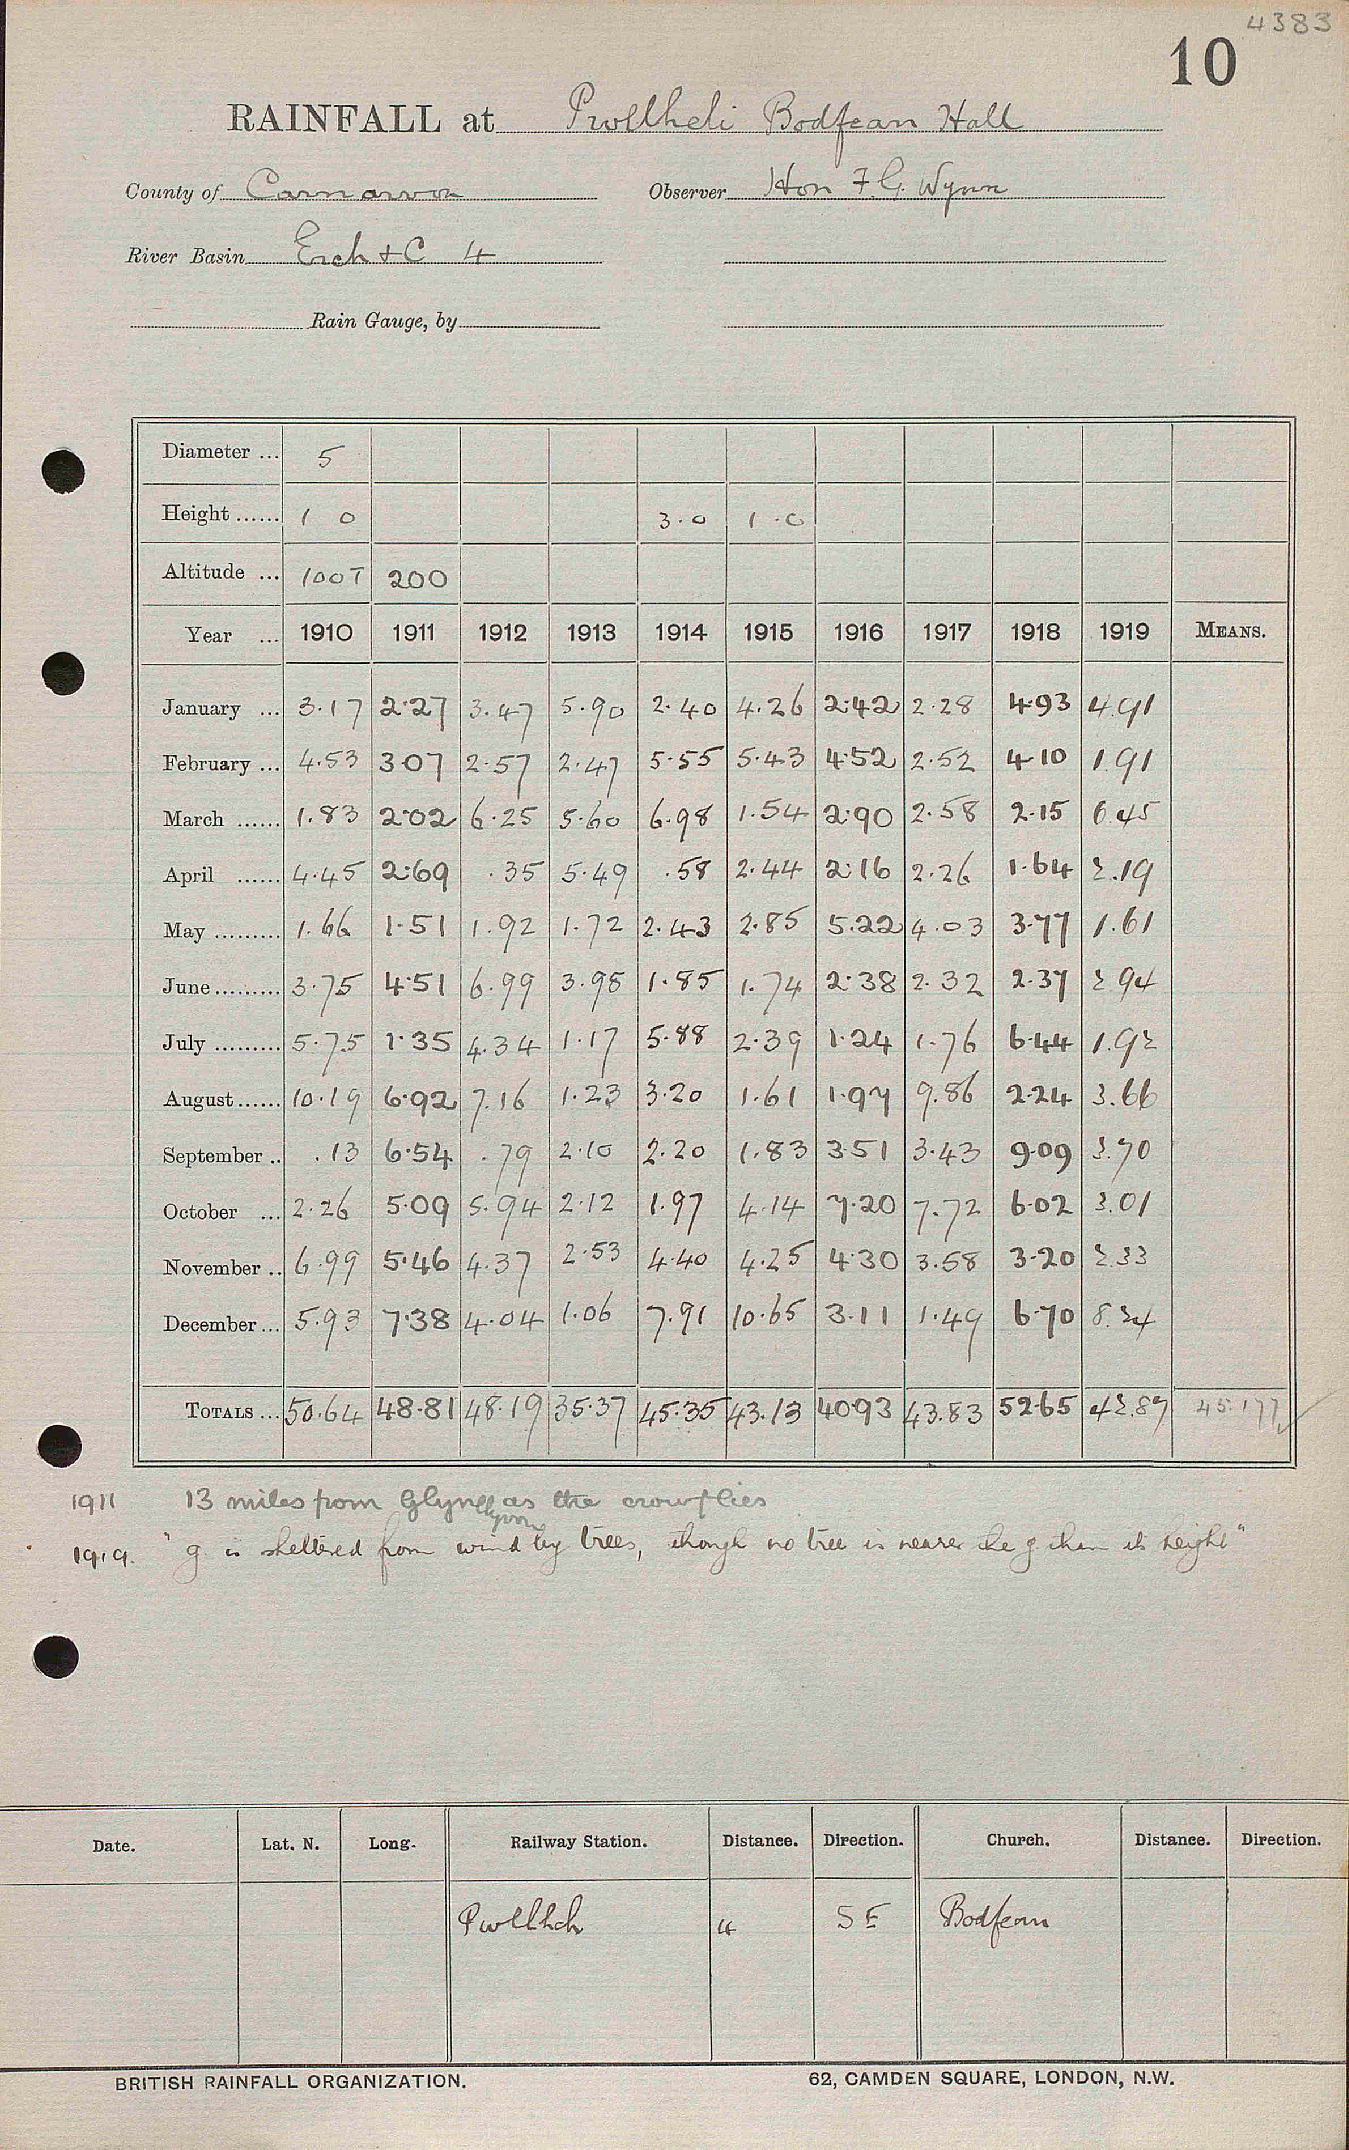 4383
10
RAINFALL at Pwllheli Bodfean Hall
County of Carnarvon Observer Hon F G. Wynn
River Basin Erch & C 4
Rain Gauge, by
Diameter ... 5
Height ...... 1 0 3.0 1.0
Altitude ... 100T 200
Year ... 1910 1911 1912 1913 1914 1915 1916 1917 1918 1919 MEANS.
January ... 3.17 2.27 3.47 5.90 2.40 4.26 2.42 2.28 4.93 4.91
February ... 4.53 3.07 2.57 2.47 5.55 5.43 4.52 2.52 4.10 1.91
March ...... 1.83 2.02 6.25 5.60 6.98 1.54 2.90 2.58 2.15 6.45
April ...... 4.45 2.69 .35 5.49 .58 2.44 2.16 2.26 1.64 2.19
May ......... 1.66 1.51 1.92 1.72 2.43 2.85 5.22 4.03 3.77 1.61
June......... 3.75 4.51 6.99 3.98 1.85 1.74 2.38 2.32 2.37 2.94
July ......... 5.75 1.35 4.34 1.17 5.88 2.39 1.24 1.76 6.44 1.92
August...... 10.19 6.92 7.16 1.23 3.20 1.61 1.97 9.86 2.24 3.66
September .. .13 6.54 .79 2.10 2.20 1.83 3.51 3.43 9.09 3.70
October ... 2.26 5.09 5.94 2.12 1.97 4.14 7.20 7.72 6.02 3.01
November .. 6.99 5.46 4.37 2.53 4.40 4.25 4.30 3.58 3.20 2.33
December... 5.93 7.38 4.04 1.06 7.91 10.65 3.11 1.49 6.70 8.24
TOTALS ... 50.64 48.81 48.19 35.37 45.35 43.13 40.93 43.83 52.65 42.87 45.177
1911 13 miles from Glynllyvon as the crow flies
1919. "g is sheltered from wind by trees, though no tree is nearer the g than its height"
Date. Lat. N. Long. Railway Station. Distance. Direction. Church. Distance. Direction.
Pwllheli 4 SE Bodfean
BRITISH RAINFALL ORGANIZATION. 62, CAMDEN SQUARE, LONDON, N.W.